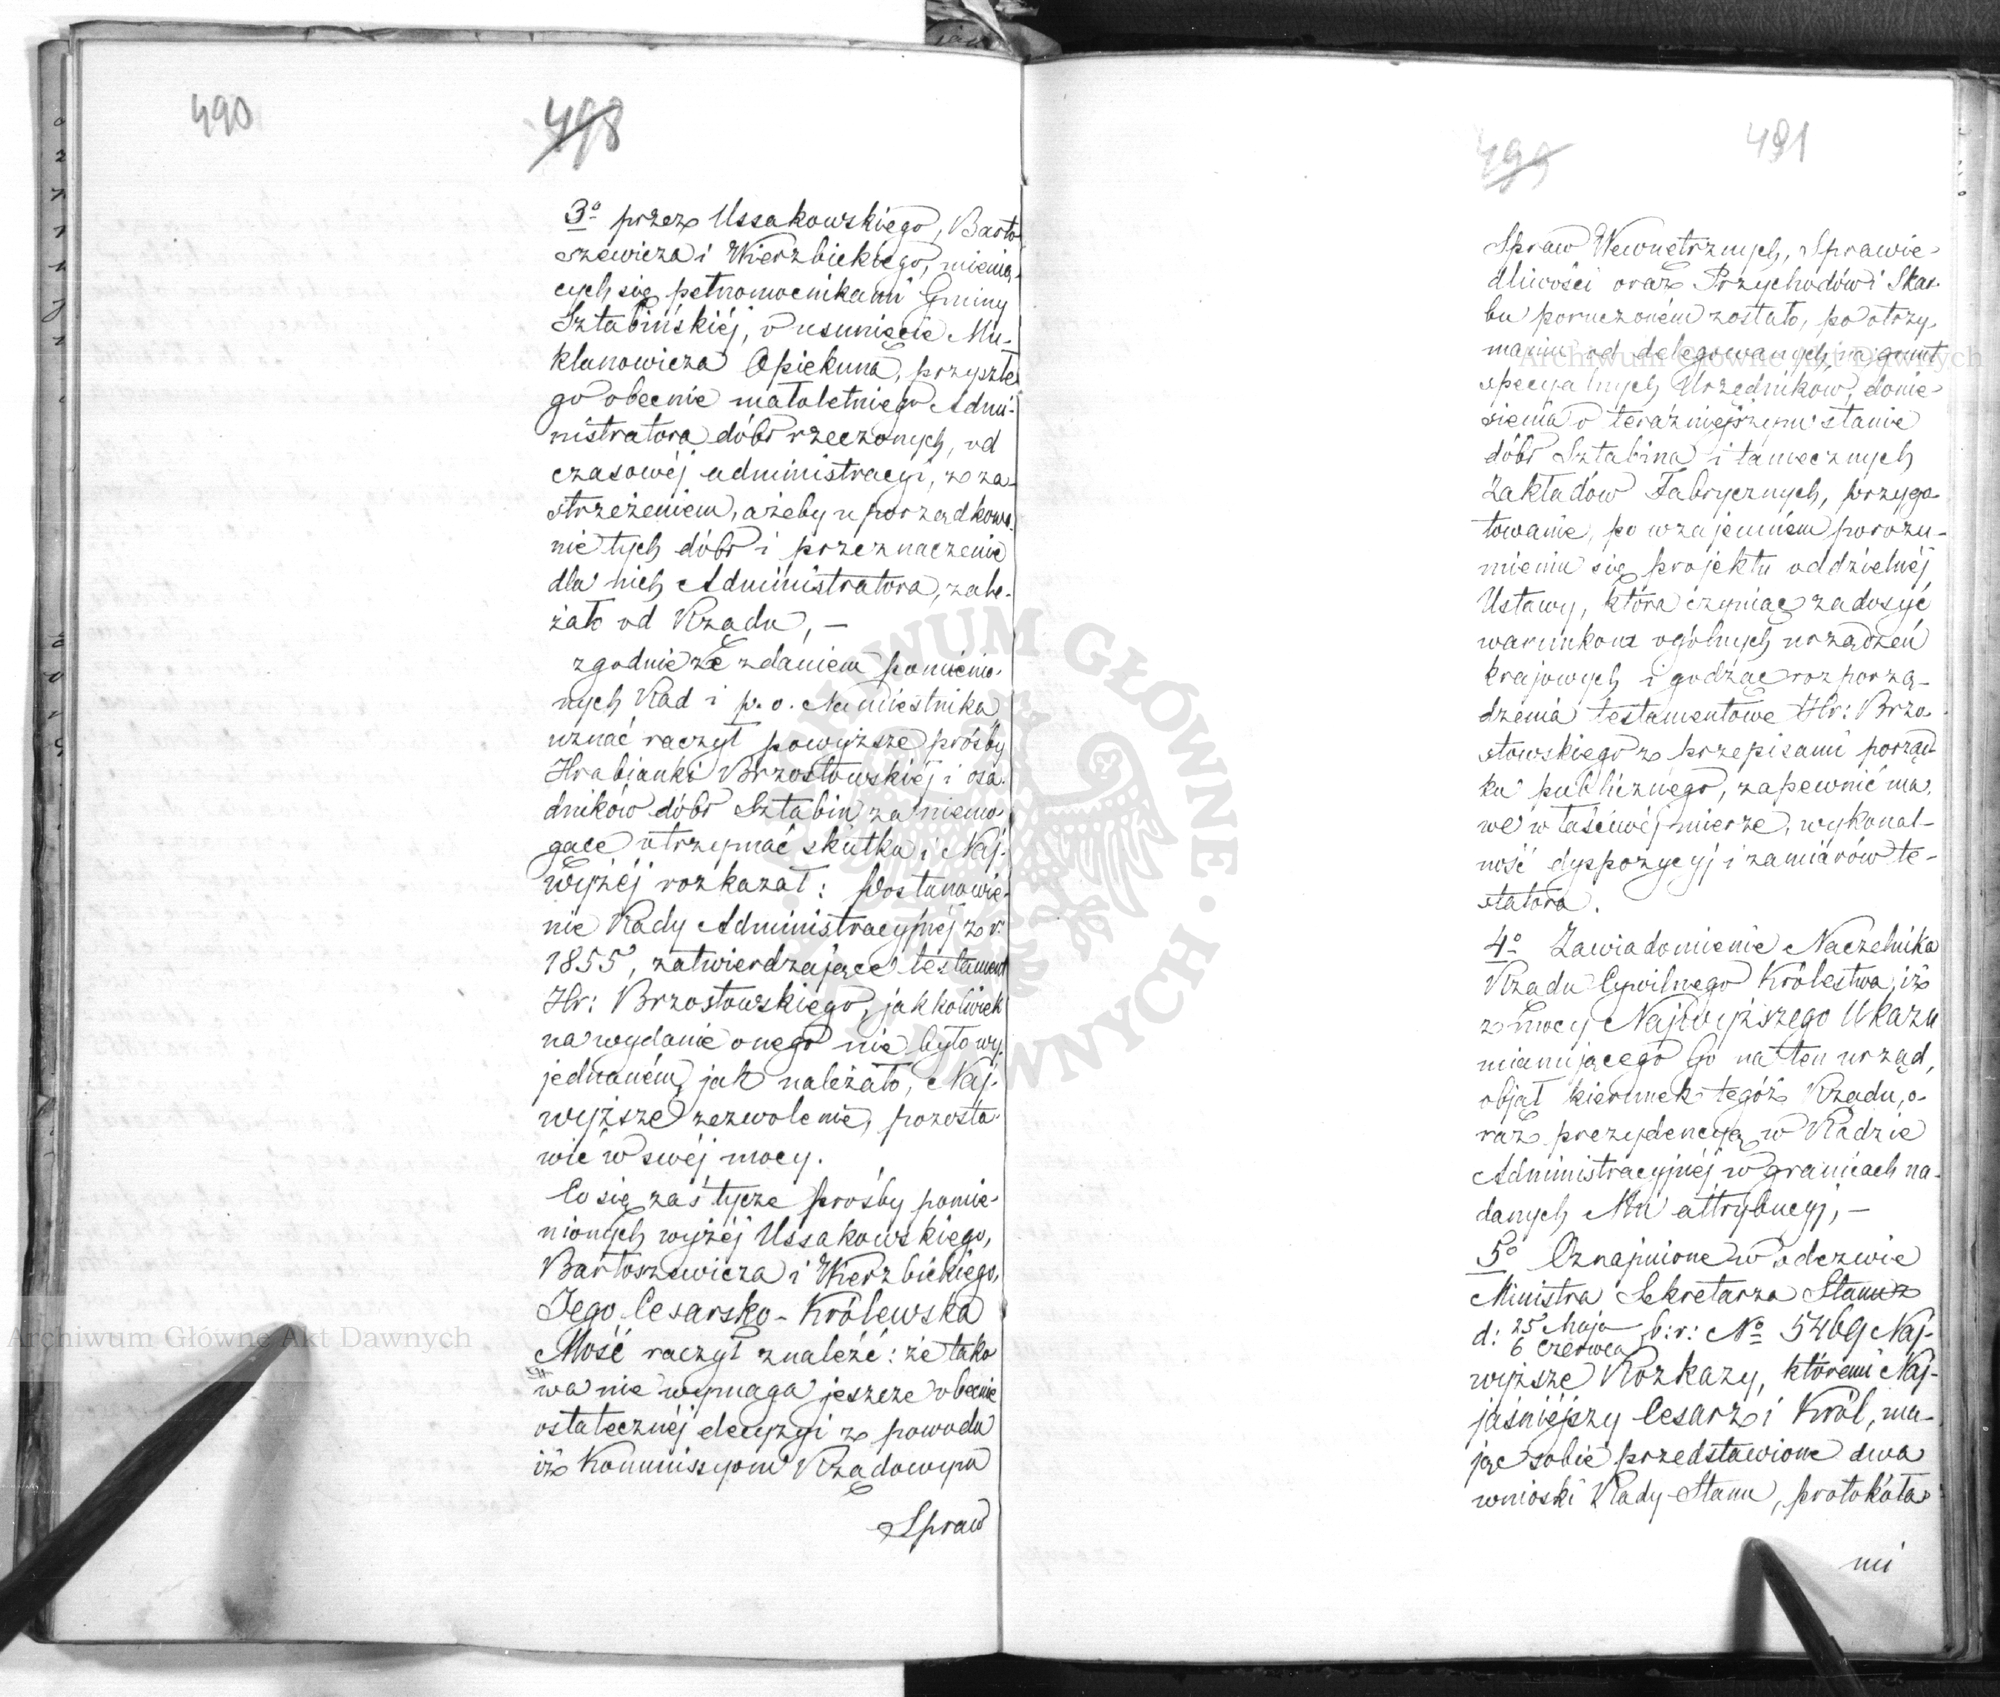 490
498
3º przez Ussakowskiego, Barto-
szewicza i Wierzbickiego, mienią-
cych się pełnomocnikami Gminy
Sztabińskiéj, o usunięcie Mu-
klanowicza Opiekuna, przyszłe
go obecnie małoletniego Admi-
nistratora dóbr rzeczonych, od
czasowéj administracyi, z za-
strzeżeniem, ażeby uporządkowa-
nie tych dóbr i przeznaczenie
dla nich Administratora, zale-
żało od Rządu, —
zgodnie ze zdaniem pomienio-
nych Rad i p. o. Namiestnika
uznać raczył powyższe prośby
Hrabianki Brzostowskiéj i osa-
dników dóbr Sztabin za niemo-
gące otrzymać skutku i Naj-
wyżéj rozkazał: Postanowie-
nie Rady Administracyjnéj z r:
1855, zatwierdzające testament
Hr: Brzostowskiego, jakkolwiek
na wydanie onego nie było wy-
jednaném, jak należało, Naj-
wyższe zezwolenie, pozosta-
wić w swéj mocy.
Co się zaś tycze prośby pomie-
nionych wyżéj Ussakowskiego,
Bartoszewicza i Wierzbickiego,
Jego Cesarsko-Królewska
Mość raczył znaleźć: że tako
wa nie wymaga jeszcze obecnie
ostatecznéj decyzyi z powodu
iż Kommissyom Rządowym
Spraw
499
491
Spraw Wewnętrznych, Sprawie-
dliwości oraz Przychodów i Skar-
bu poruczoném zostało, po otrzy-
maniu od delegowanych na grunt
specyalnych Urzędników, donie-
sienia o teraźniejszym stanie
dóbr Sztabina i tamecznych
Zakładów Fabrycznych, przygo-
towanie, po wzajemném porozu-
mieniu się projektu oddzielnéj
Ustawy, która czyniąc zadosyć
warunkom ogólnych urządzeń
krajowych i godząc rozporzą-
dzenia testamentowe Hr: Brzo-
stowskiego z przepisami porząd
ku publicznego, zapewnić ma,
we właściwéj mierze, wykonal-
ność dyspozycyj i zamiarów te-
statora.
4º Zawiadomienie Naczelnika
Rządu Cywilnego Królestwa, iż
z mocy Najwyższego Ukazu
mianującego Go na ten urząd,
objął kierunek tegóż Rządu, o-
raz prezydencyą w Radzie
Administracyjnéj w granicach na-
danych Mu attrybucyj, —
5º Oznajmione w odezwie
Ministra Sekretarza Stanu z
d: 25 Maja / 6 Czerwca b: r: Nº 5469 Naj-
wyższe Rozkazy, któremi Naj-
jaśniejszy Cesarz i Król, ma-
jąc sobie przedstawione dwa
wnioski Rady Stanu, protokóła-
mi
Archiwum Główne Akt Dawnych
Archiwum Główne Akt Dawnych
ARCHIWUM GŁÓWNE AKT DAWNYCH